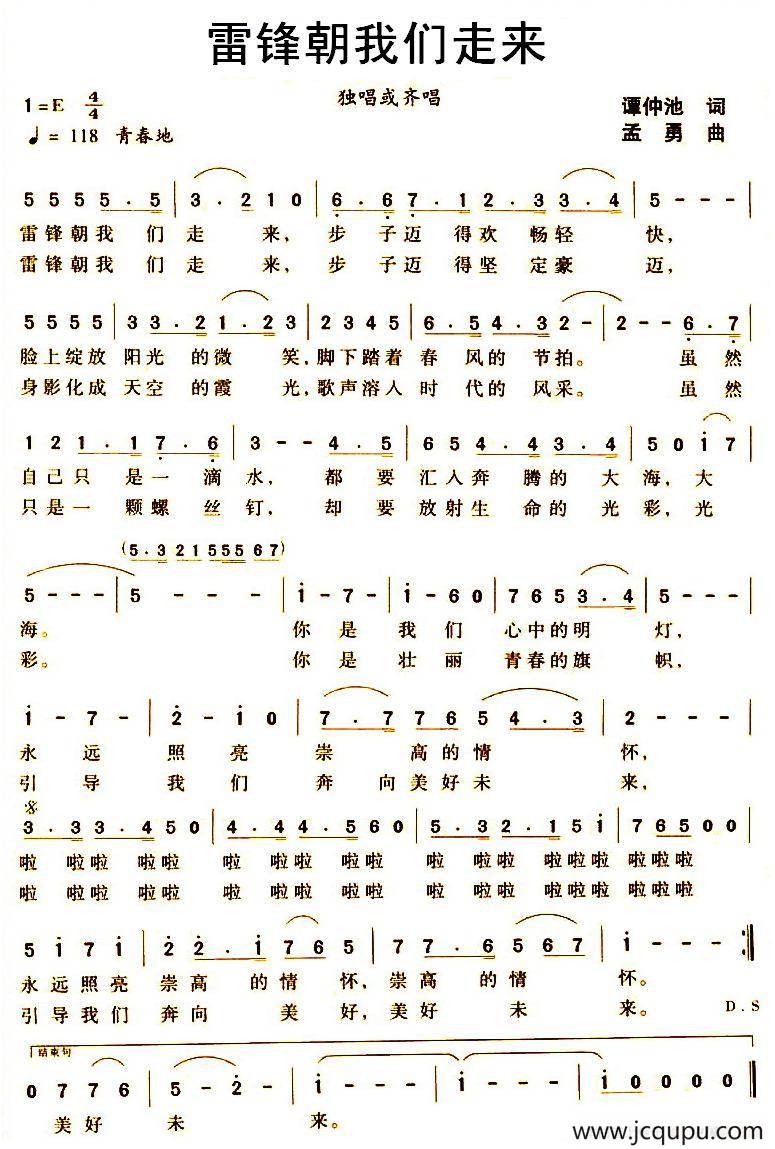 雷锋朝我们走来
1=E 4/4 独唱或齐唱 谭仲池 词
♩= 118 青春地 孟 勇 曲
5 5 5 5 5 . 5 | 3 . 2 1 0 | 6 . 6 7 . 1 2 . 3 3 . 4 | 5 - - - |
雷锋朝我 们 走 来, 步 子迈 得欢 畅轻 快,
雷锋朝我 们 走 来, 步 子迈 得坚 定豪 迈,
5 5 5 5 | 3 3 . 2 1 . 2 3 | 2 3 4 5 | 6 . 5 4 . 3 2 - | 2 - - 6 . 7 |
脸上绽放 阳光 的微 笑,脚下踏着 春 风的 节拍。 虽 然
身影化成 天空 的霞 光,歌声溶人 时 代的 风采。 虽 然
1 2 1 . 1 7 . 6 | 3 - - 4 . 5 | 6 5 4 . 4 3 . 4 | 5 0 i 7 |
自己只 是一 滴水, 都 要 汇人奔 腾的 大 海,大
只是一 颗螺 丝钉, 却 要 放射生 命的 光 彩,光
(5 . 3 2 1 5 5 5 6 7)
5 - - - | 5 - - - | i - 7 - | i - 6 0 | 7 6 5 3 . 4 | 5 - - - |
海。 你 是 我 们 心中的明 灯,
彩。 你 是 壮 丽 青春的旗 帜,
i - 7 - | 2 - i 0 | 7 . 7 7 6 5 4 . 3 | 2 - - - |
永 远 照 亮 崇 高的情 怀,
引 导 我 们 奔 向美好未 来,
3 . 3 3 . 4 5 0 | 4 . 4 4 . 5 6 0 | 5 . 3 2 . 1 5 i | 7 6 5 0 0 |
啦 啦啦 啦啦 啦 啦啦 啦啦 啦 啦啦 啦啦啦 啦啦啦
啦 啦啦 啦啦 啦 啦啦 啦啦 啦 啦啦 啦啦啦 啦啦啦
5 i 7 i | 2 2 . i 7 6 5 | 7 7 . 6 5 6 7 | i - - - :||
永远照亮 崇高 的情 怀,崇高 的情 怀。
引导我们 奔向 美 好,美好 未 来。 D.S
结束句
0 7 7 6 | 5 - 2 - | i - - - | i - - - | i 0 0 0 0 ||
美好 未 来。
www.jcqupu.com